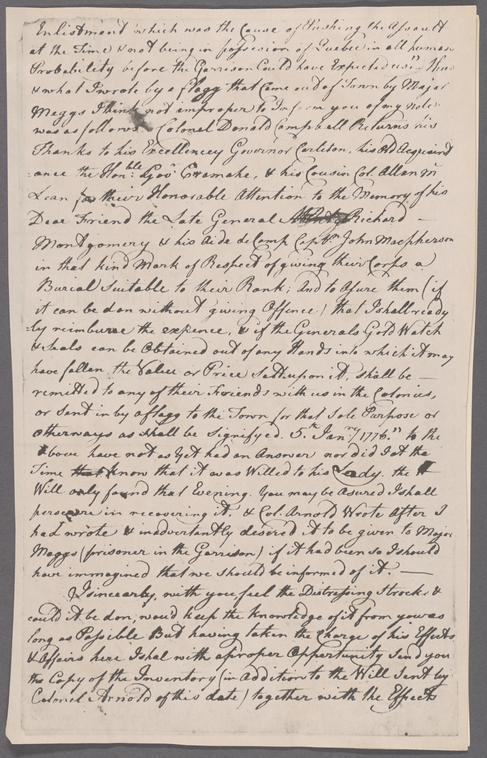 Enlistment which was the Cause of Pushing the Assault
at the Time & not being in possession of Quebec in all human
Probability before the Garrison Could have Expected us Thus
& what I wrote by a flagg that Came out of Town by Major
Meggs I think not improper to Inform you of my note
was as follows Colonel Donald Campbell Returns his
Thanks to his Excellencey Governor Carleton, his Old Acquaint
=ance the Honble Govr Cramahe, & his Cousin Col. Allan M
Lean for their Honorable Attention to the Memory of his
Dear Friend the Late General Richard
Montgomery & his Aide de Camp Captn John Macpherson
in that kind Mark of Respect of giving their Corps a
Burial Suitable to their Rank; And to Asure them (if
it can be don without giving Offence) that I shall ready
=ly reimburse the expence, & if the Generals Gold Watch
& Seals can be Obtained out of any Hands into which it may
have fallen, the Value or Price Sett upon it, shall be
remitted to any of their Friends with us in the Colonies,
or Sent in by a flagg to the Town for that Sole Purpose or
otherways as shall be Signifyed. 5th Janry 1776." to the
above have not as Yet had an Answer nor did I at the
Time know that it was Willed to his Lady. the
Will only found that Evening. You may be Asured I shall
persevere in recovering it. & Col. Arnold Wrote After I
had wrote & inadvertantly desired it to be given to Major
Meggs (prisoner in the Garrison) if it had been so I should
have immagined that we should be informed of it.
I sincearly, with you feel the Distressing Stroke &
could it be don, woud keep the Knowledge of it from you as
long as Possible But having taken the Charge of his Effects
& Affairs here I shal with a proper Opportunity Send you
the Copy of the Inventory (in Addition to the Will Sent by
Colonel Arnold of this date) together with the Effects